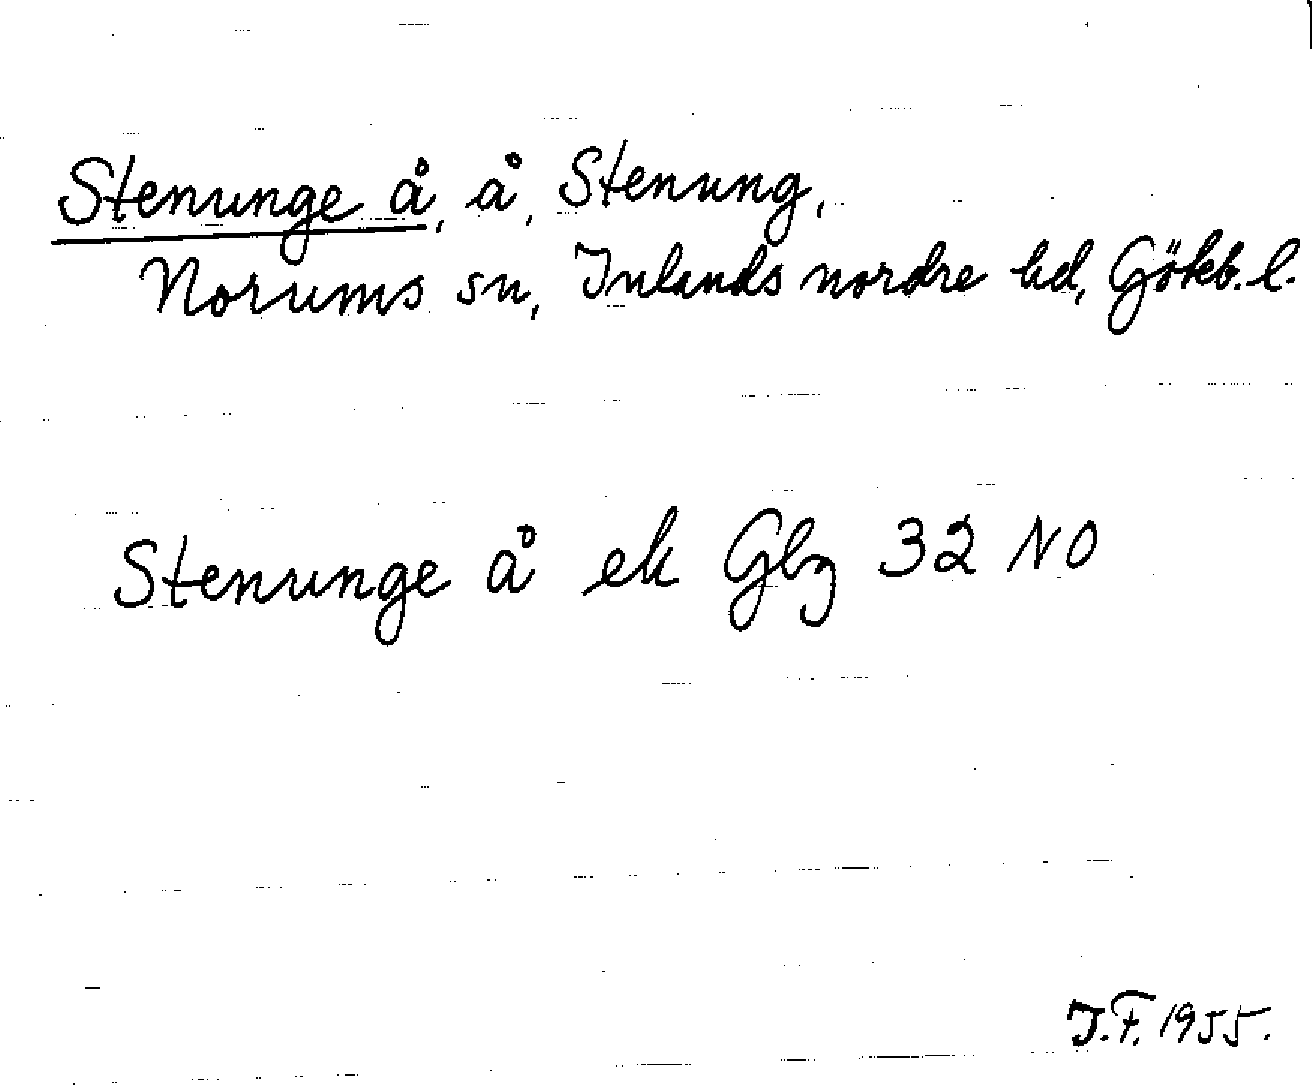 Stenunge å, å, Stenung,
Norums sn, Inlands nordre hd, Gökb. l.
Stenunge å ek Gbg 32 NO
J.F. 1955.